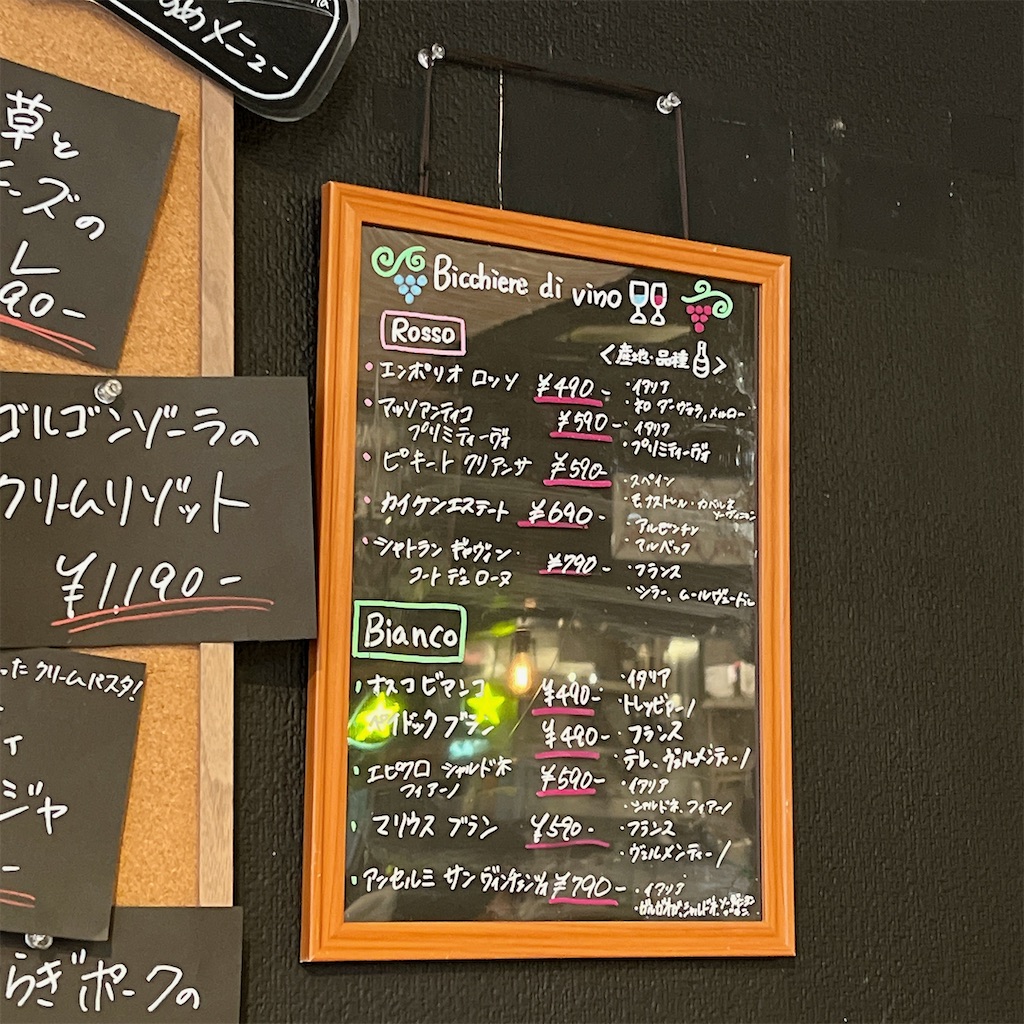 めメニュー
草と
ーズの
レ
90-
ゴルゴンゾーラの
クリームリゾット
¥1,190-
ったクリームパスタ!
ィ
ジャ
らぎポークの
Bicchiere di vino
Rosso
<産地・品種>
・エンポリオ ロッソ ¥490-
・イタリア
・ネロ ダーヴォラ,メルロー
・マッソアンティコ
プリミティーヴォ ¥590-
・イタリア
・プリミティーヴォ
・ピキート クリアンサ ¥590-
・スペイン
・モナストレル・カバルネ
ソーヴィニヨン
・カイケンエステート ¥690-
・アルゼンチン
・マルベック
・シャトラン ギャヴィン・
コート デュ ローヌ ¥790-
・フランス
・シラー、ムールヴェードル
Bianco
・オスコ ビアンコ ¥490-
・イタリア
・トレッビアーノ
ドック ブラン ¥490-
・フランス
・テレ、ヴェルメンティーノ
・エピクロ シャルドネ
フィアーノ ¥590-
・イタリア
・シャルドネ、フィアーノ
・マリウス ブラン ¥590-
・フランス
・ヴェルメンティーノ
・アンセルミ サン ヴィンチェンツォ ¥790-
・イタリア